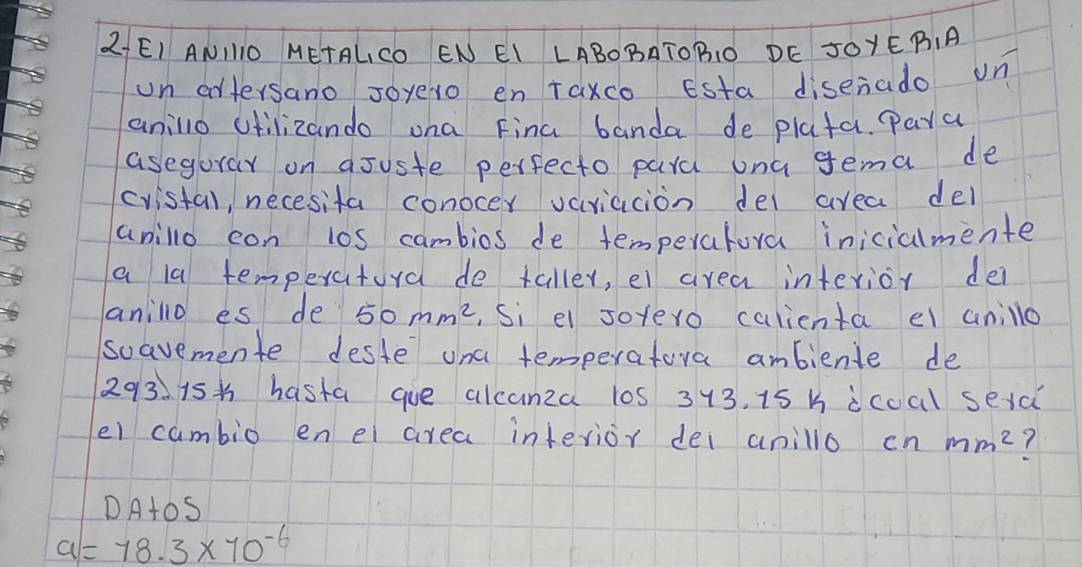 2-El ANIllO METALICO EN El LABOBATOBIO DE JOYEBIA
un artersano Joyero en Taxco Esta diseñado un
anillo Utilizando una Fina banda de plata. Para
asegurar un aJuste perfecto para una gema de
cristal, necesita conocer variación del area del
anillo con los cambios de temperatura inicialmente
a la temperatura de taller, el area interior del
anillo es de 50 mm². Si el Joyero calienta el anillo
suavemente deste una temperatura ambiente de
293.15 k hasta que alcanza los 343.15 k ¿cual será
el cambio en el area interior del anillo en mm²?
DAtOS
a = 18.3 x 10⁻⁶